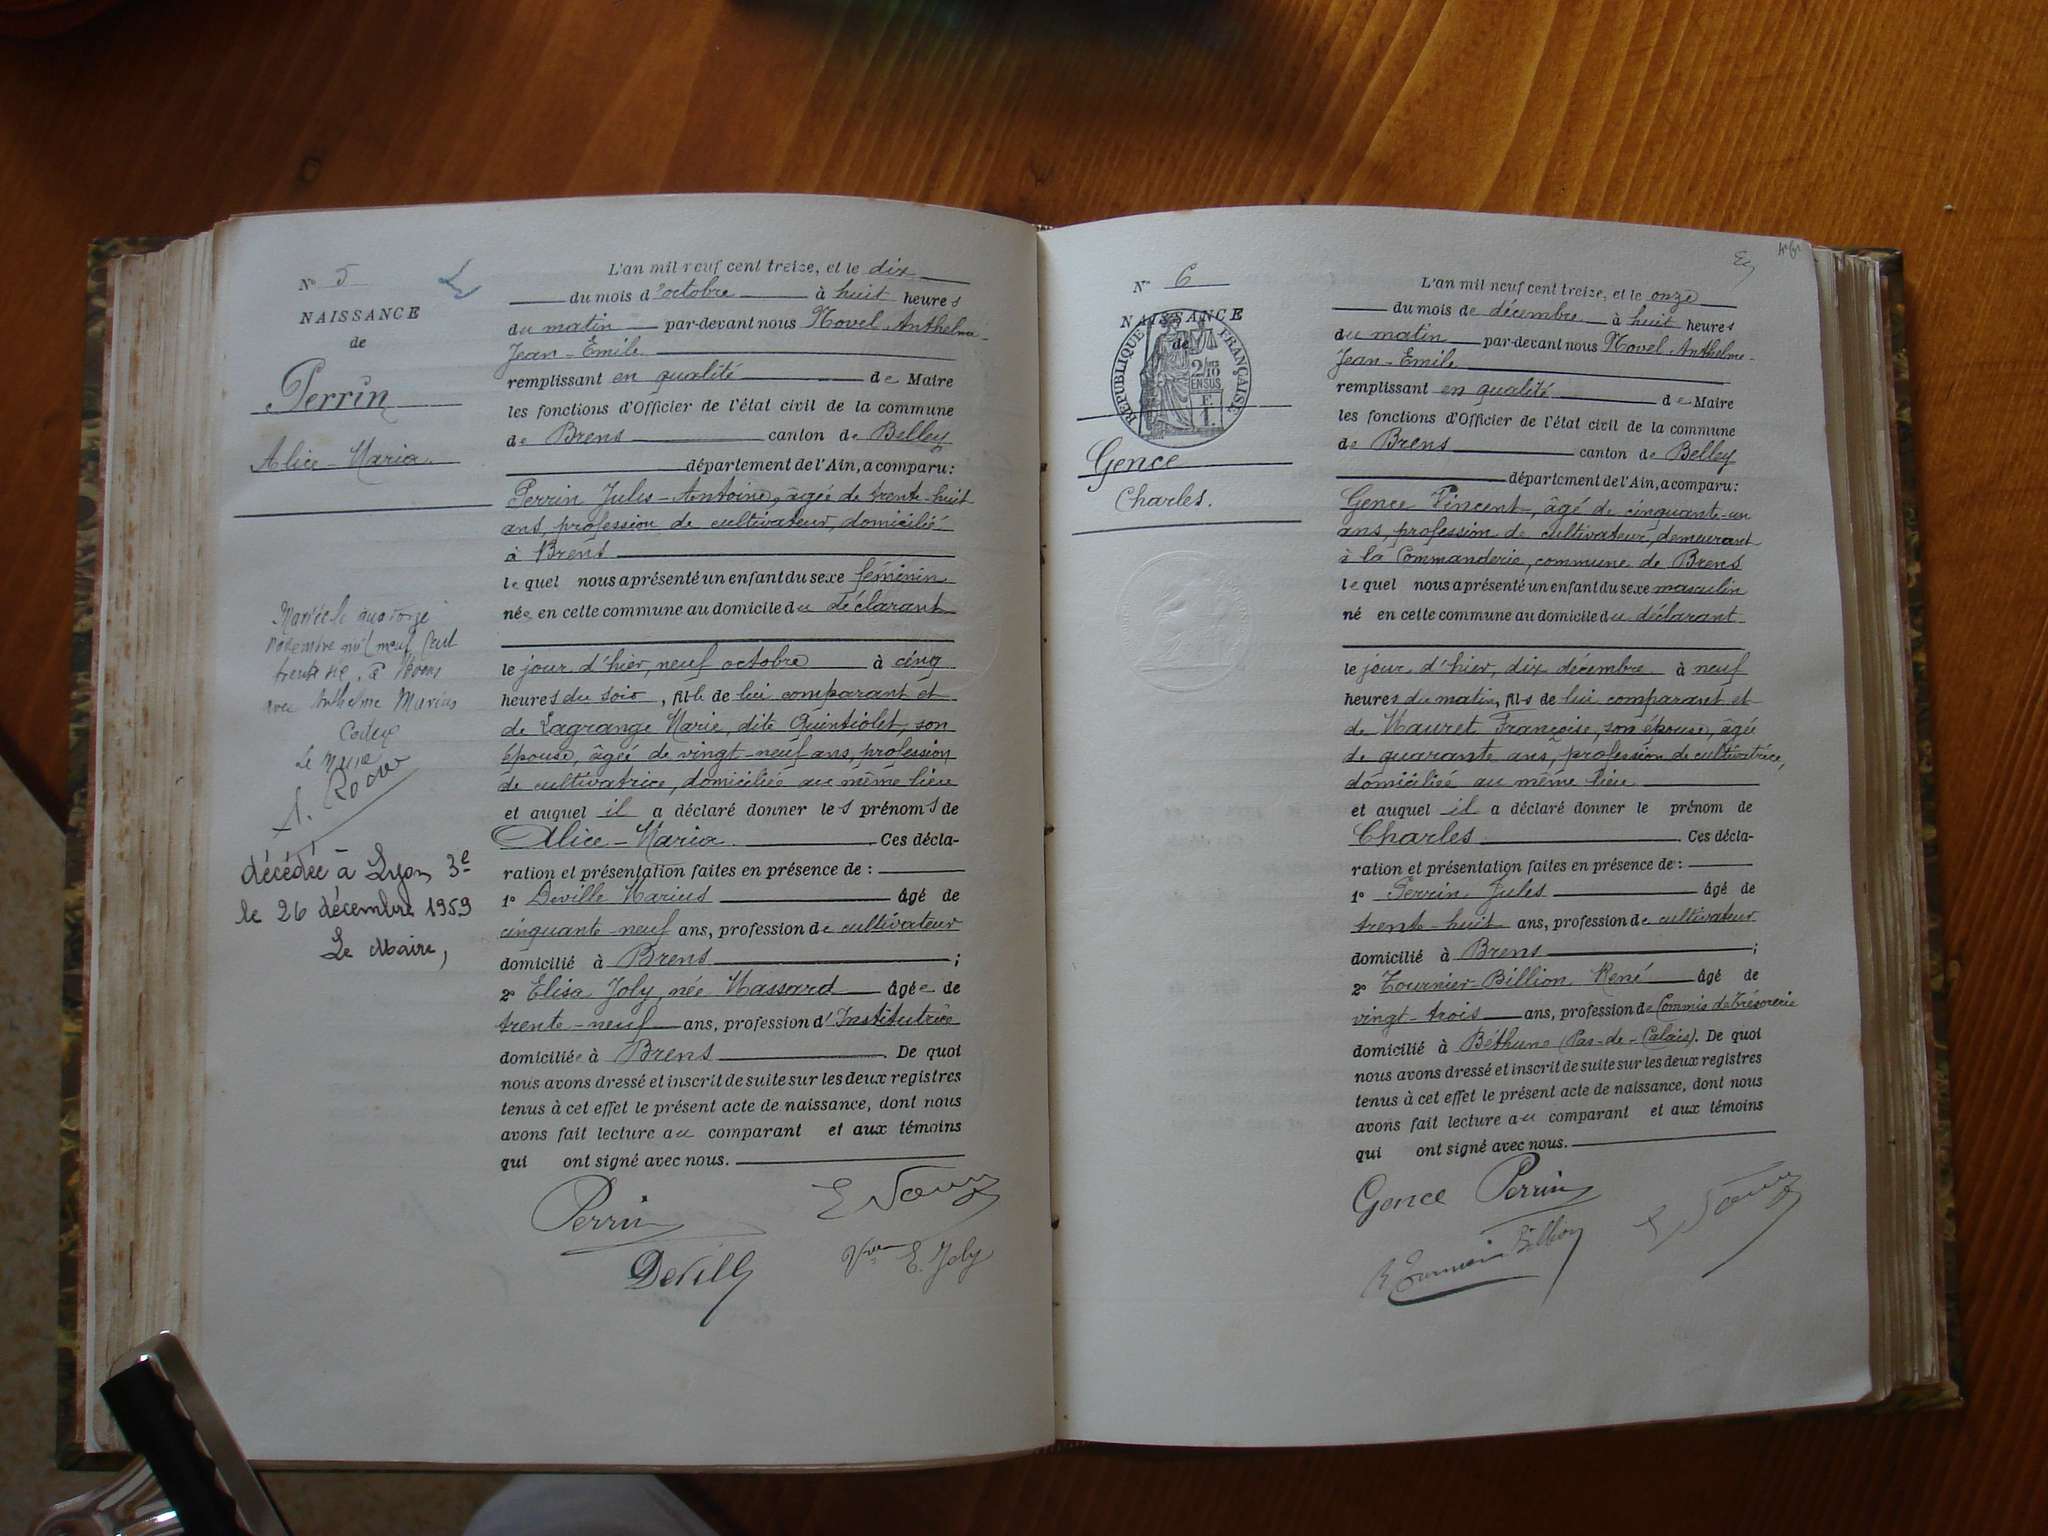 N° 5
NAISSANCE
de
Perrin
Alice-Maria
Mariée le quatorze
novembre mil neuf cent
trente , à
avec Anthelme Marius
Le Maire
décédée à Lyon 3e
le 26 décembre 1959
Le Maire,
L'an mil neuf cent treize, et le dix
du mois d'octobre à huit heures
du matin par-devant nous Novel Anthelme-
Jean-Emile
remplissant en qualité de Maire
les fonctions d'Officier de l'état civil de la commune
de Brens canton de Belley
département de l'Ain, a comparu:
Perrin Jules-Antoine, âgée de trente-huit
ans, profession de cultivateur, domicilié
à Brens
lequel nous a présenté un enfant du sexe féminin
née en cette commune au domicile du déclarant
le jour d'hier, neuf octobre à cinq
heures du soir, fille de lui comparant et
de Lagrange Marie, dite Quintiolet, son
épouse, âgée de vingt-neuf ans, profession
de cultivatrice, domiciliée au même lieu
et auquel il a déclaré donner les prénoms de
Alice-Maria Ces décla-
ration et présentation faites en présence de :
1° Deville Marius âgé de
cinquante-neuf ans, profession de cultivateur
domicilié à Brens ;
2° Elisa Joly, née Massard âgée de
trente-neuf ans, profession d'Institutrice
domiciliée à Brens. De quoi
nous avons dressé et inscrit de suite sur les deux registres
tenus à cet effet le présent acte de naissance, dont nous
avons fait lecture au comparant et aux témoins
qui ont signé avec nous.
Perrin
Deville
E. Joly
N° 6
NAISSANCE
de
RÉPUBLIQUE FRANÇAISE
2/10 EN SUS
Gence
Charles.
L'an mil neuf cent treize, et le onze
du mois de décembre à huit heures
du matin par-devant nous Novel Anthelme-
Jean-Emile
remplissant en qualité de Maire
les fonctions d'Officier de l'état civil de la commune
de Brens canton de Belley
département de l'Ain, a comparu:
Gence Vincent, âgé de cinquante-un
ans, profession de cultivateur, demeurant
à la Commanderie, commune de Brens
lequel nous a présenté un enfant du sexe masculin
né en cette commune au domicile du déclarant
le jour d'hier, dix décembre à neuf
heures du matin, fils de lui comparant et
de Mauret Françoise, son épouse, âgée
de quarante ans, profession de cultivatrice,
domiciliée au même lieu
et auquel il a déclaré donner le prénom de
Charles. Ces décla-
ration et présentation faites en présence de :
1° Perrin Jules âgé de
trente-huit ans, profession de cultivateur
domicilié à Brens ;
2° Tournier-Billion René âgé de
vingt-trois ans, profession de Commis de Trésorerie
domicilié à Béthune (Pas-de-Calais). De quoi
nous avons dressé et inscrit de suite sur les deux registres
tenus à cet effet le présent acte de naissance, dont nous
avons fait lecture au comparant et aux témoins
qui ont signé avec nous.
Gence Perrin
R Tournier Billion